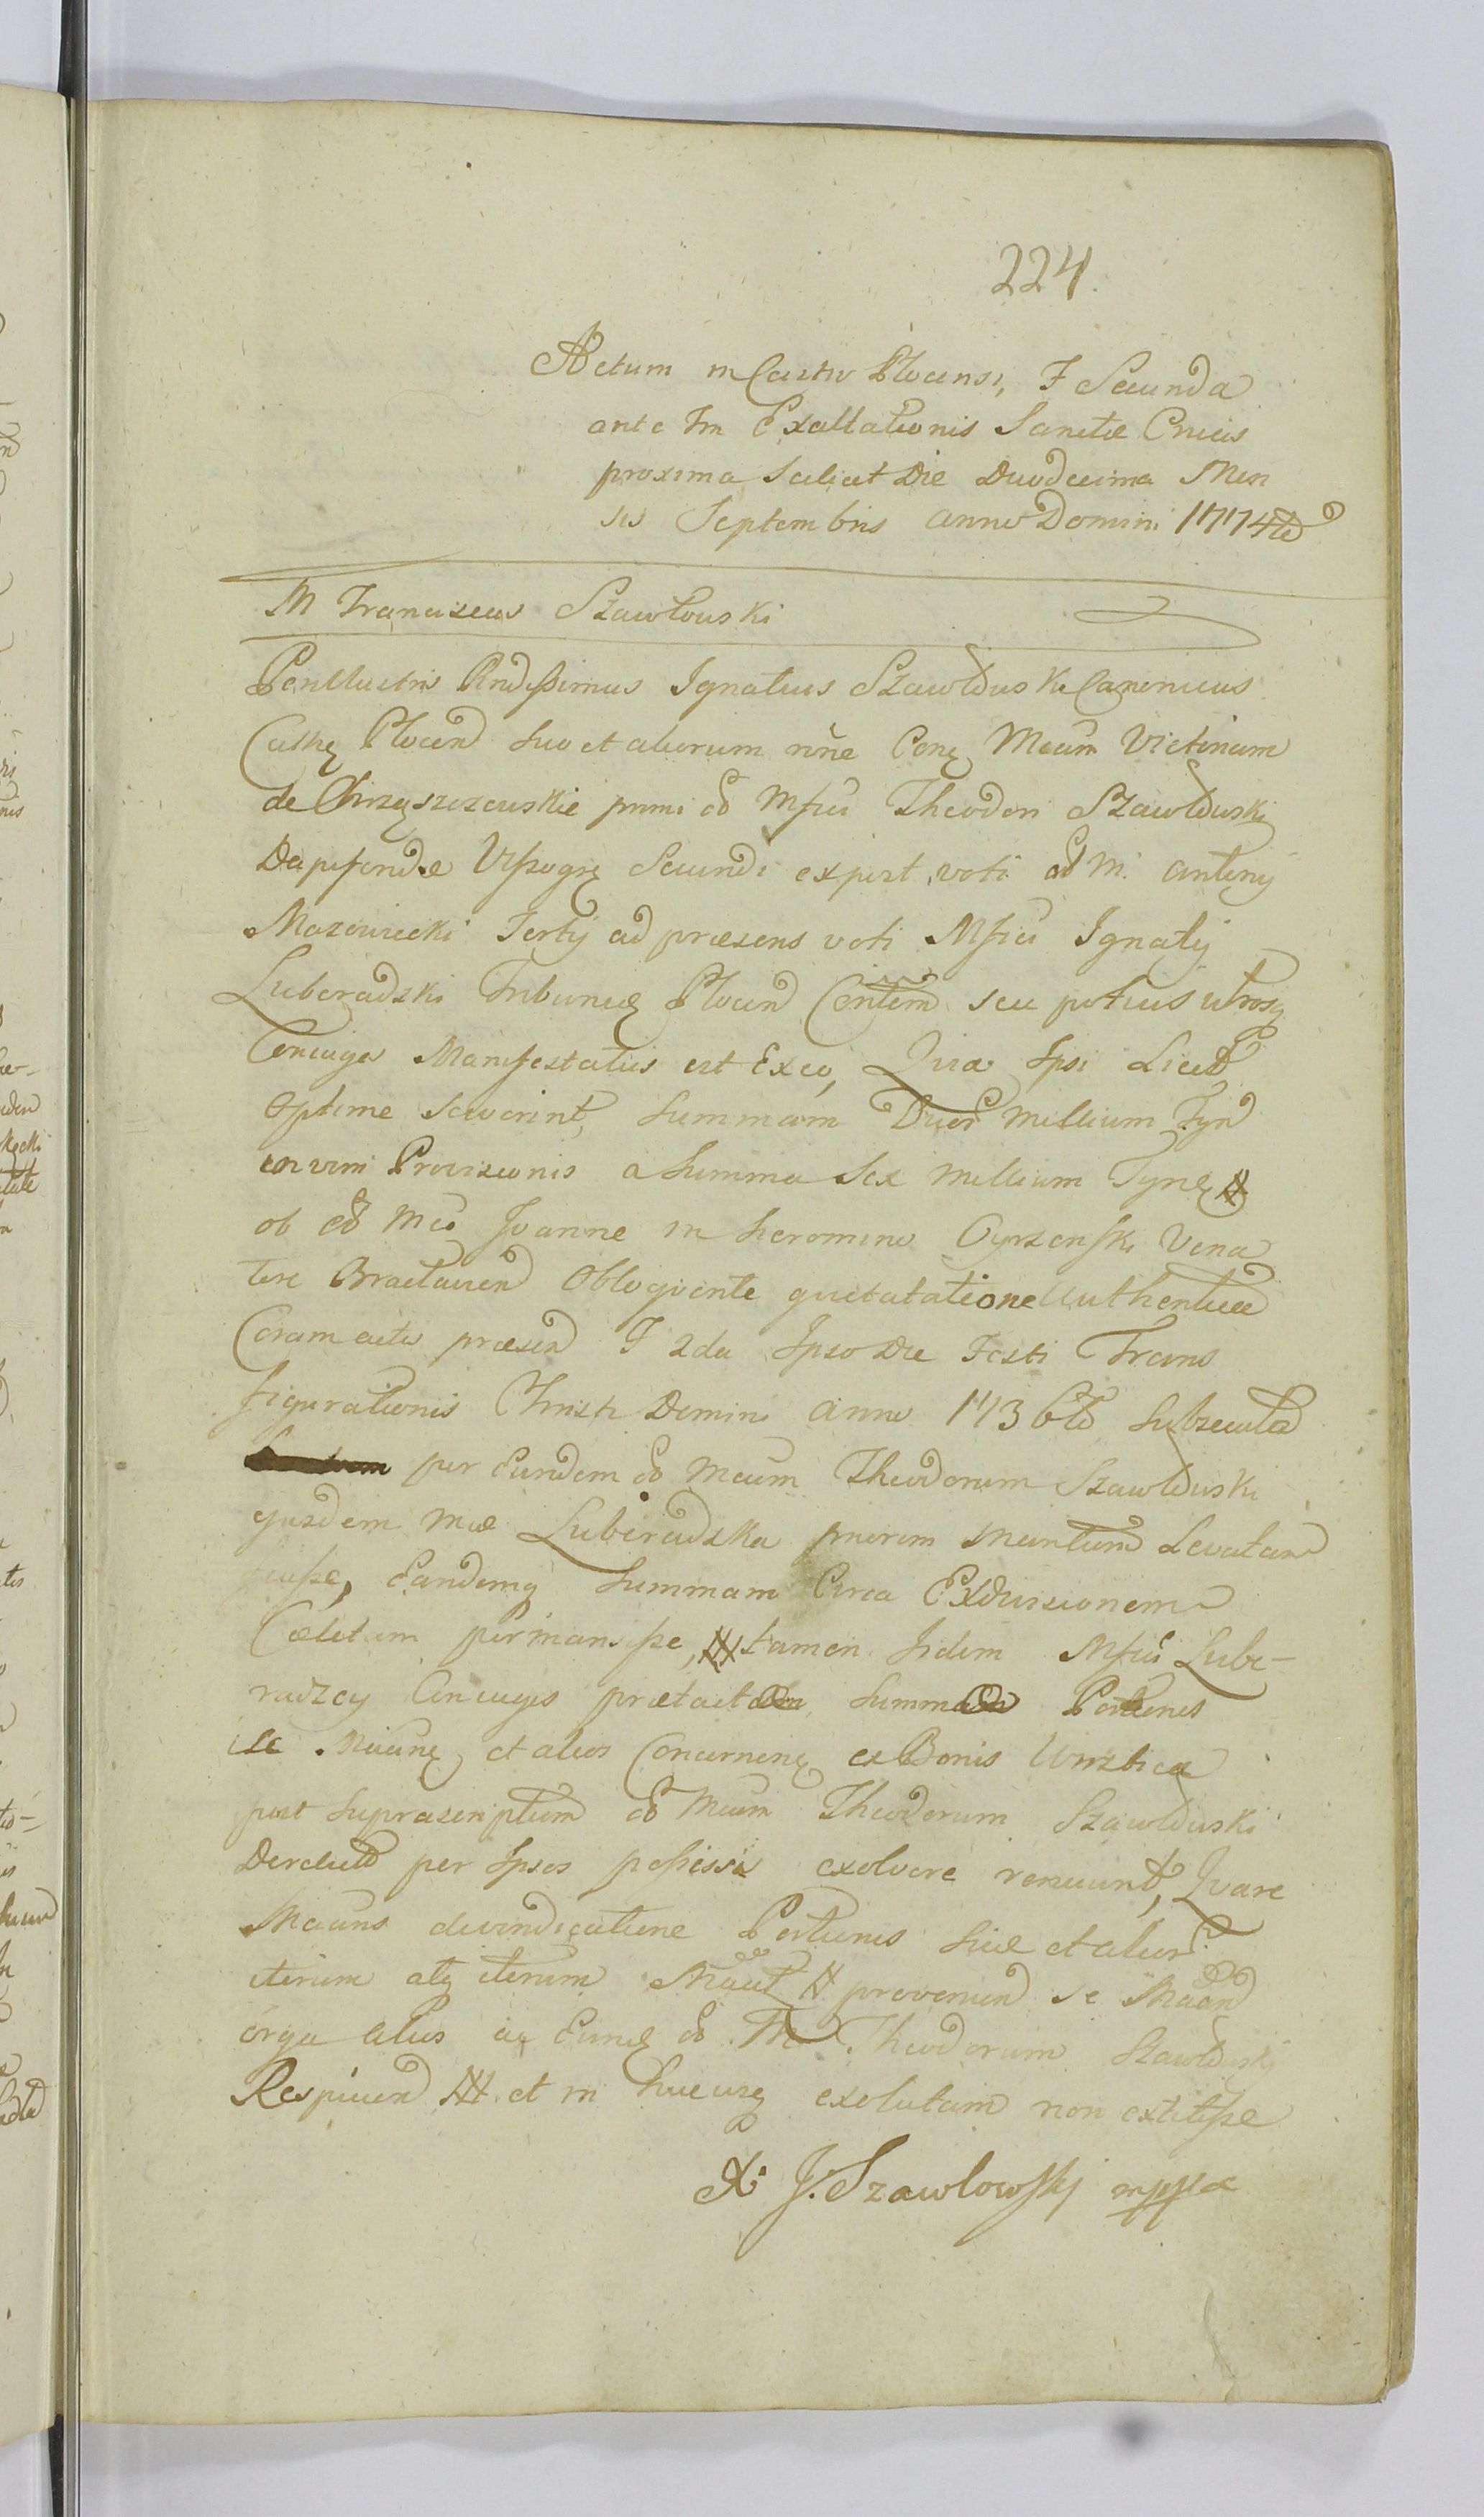 224.
Actum in Castro Plocensi, F Secunda
ante Fm Exaltationis Sanctae Crucis
proxima scilicet Die Duodecima Men
sis Septembris anno Domini 1774to
M Franciscus Szawłowski
Perillustris Rndissimus Ignatius Szawłowski Canonicus
Cathę Plocen suo et aliorum nne Conę Mcam Victinam
de Chrzęszczewskie primi oĺ Mfici Theodori Szawłowski
Dapiferidae Wyszogrę Secundi expost voti oĺ M. Antonij
Mazowiecki Tertij ad praesens voti Mfici Ignatij
Luberadzki Tribunię Plocen Conten seu potius utrosq
Coniuges Manifestatus est Exeo, Quia Ipsi Licet
optime sciverint, summam Trium Millium Tynf
Provisionis a Summa Sex Millium Tynfę
ob oĺ Mco Joanne in heromino Cyrzenski Vena
tore Braclavien Obloqvente quietatione Authentice
Coram actis praesen F 2da Ipso Die Festi Trans
figurationis Christi Domini anno 1736to subsecuta
per Eundem oĺ Mcum Theodorum Szawłowski
ejusdem Mae Luberadzka priorem Maritum Levatam
fuisse, Eandemq summam Circa Exdivisionem
Celatam permansisse, tamen Iidem Mfici Lube-
radzcy Coniuges praetactam summam Portiones
se Manę et alios Concernenę ex Bonis
post suprascriptum oĺ Mcum Theodorum Szawłowski
Derelict per Ipsos possessis exolvere renuunt, Qvare
Maans devindicatione Portionis suae et alior
iterum atq iterum Maut provenien se Maand
erga alios aę Eunę oĺ M Theodorum Szawłowski
Respicien et in hucusq exolutam non extitisse
X. J. Szawlowski mppa